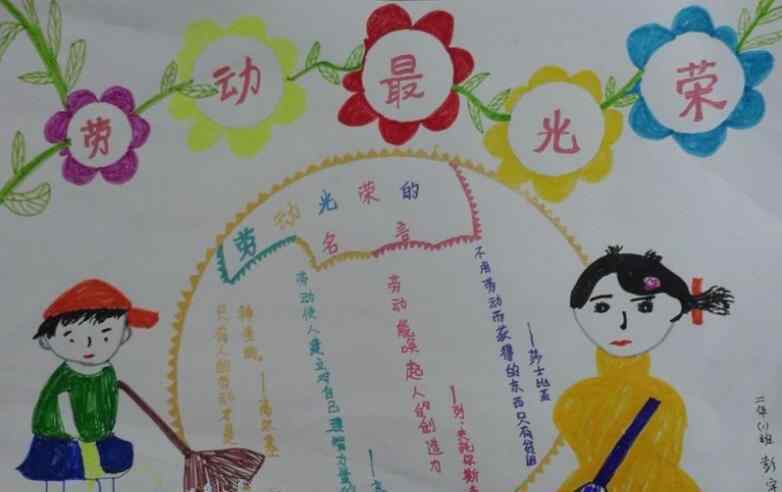 劳动最光荣
劳动光荣的
名言
只有人的劳动才是
神圣的。——高尔基
劳动使人建立对自己理智力量的
劳动能唤起人的创造力
——列·夫托尔斯泰
不用劳动而获得的东西只有贫困
——莎士比亚
二年(1)班 彭